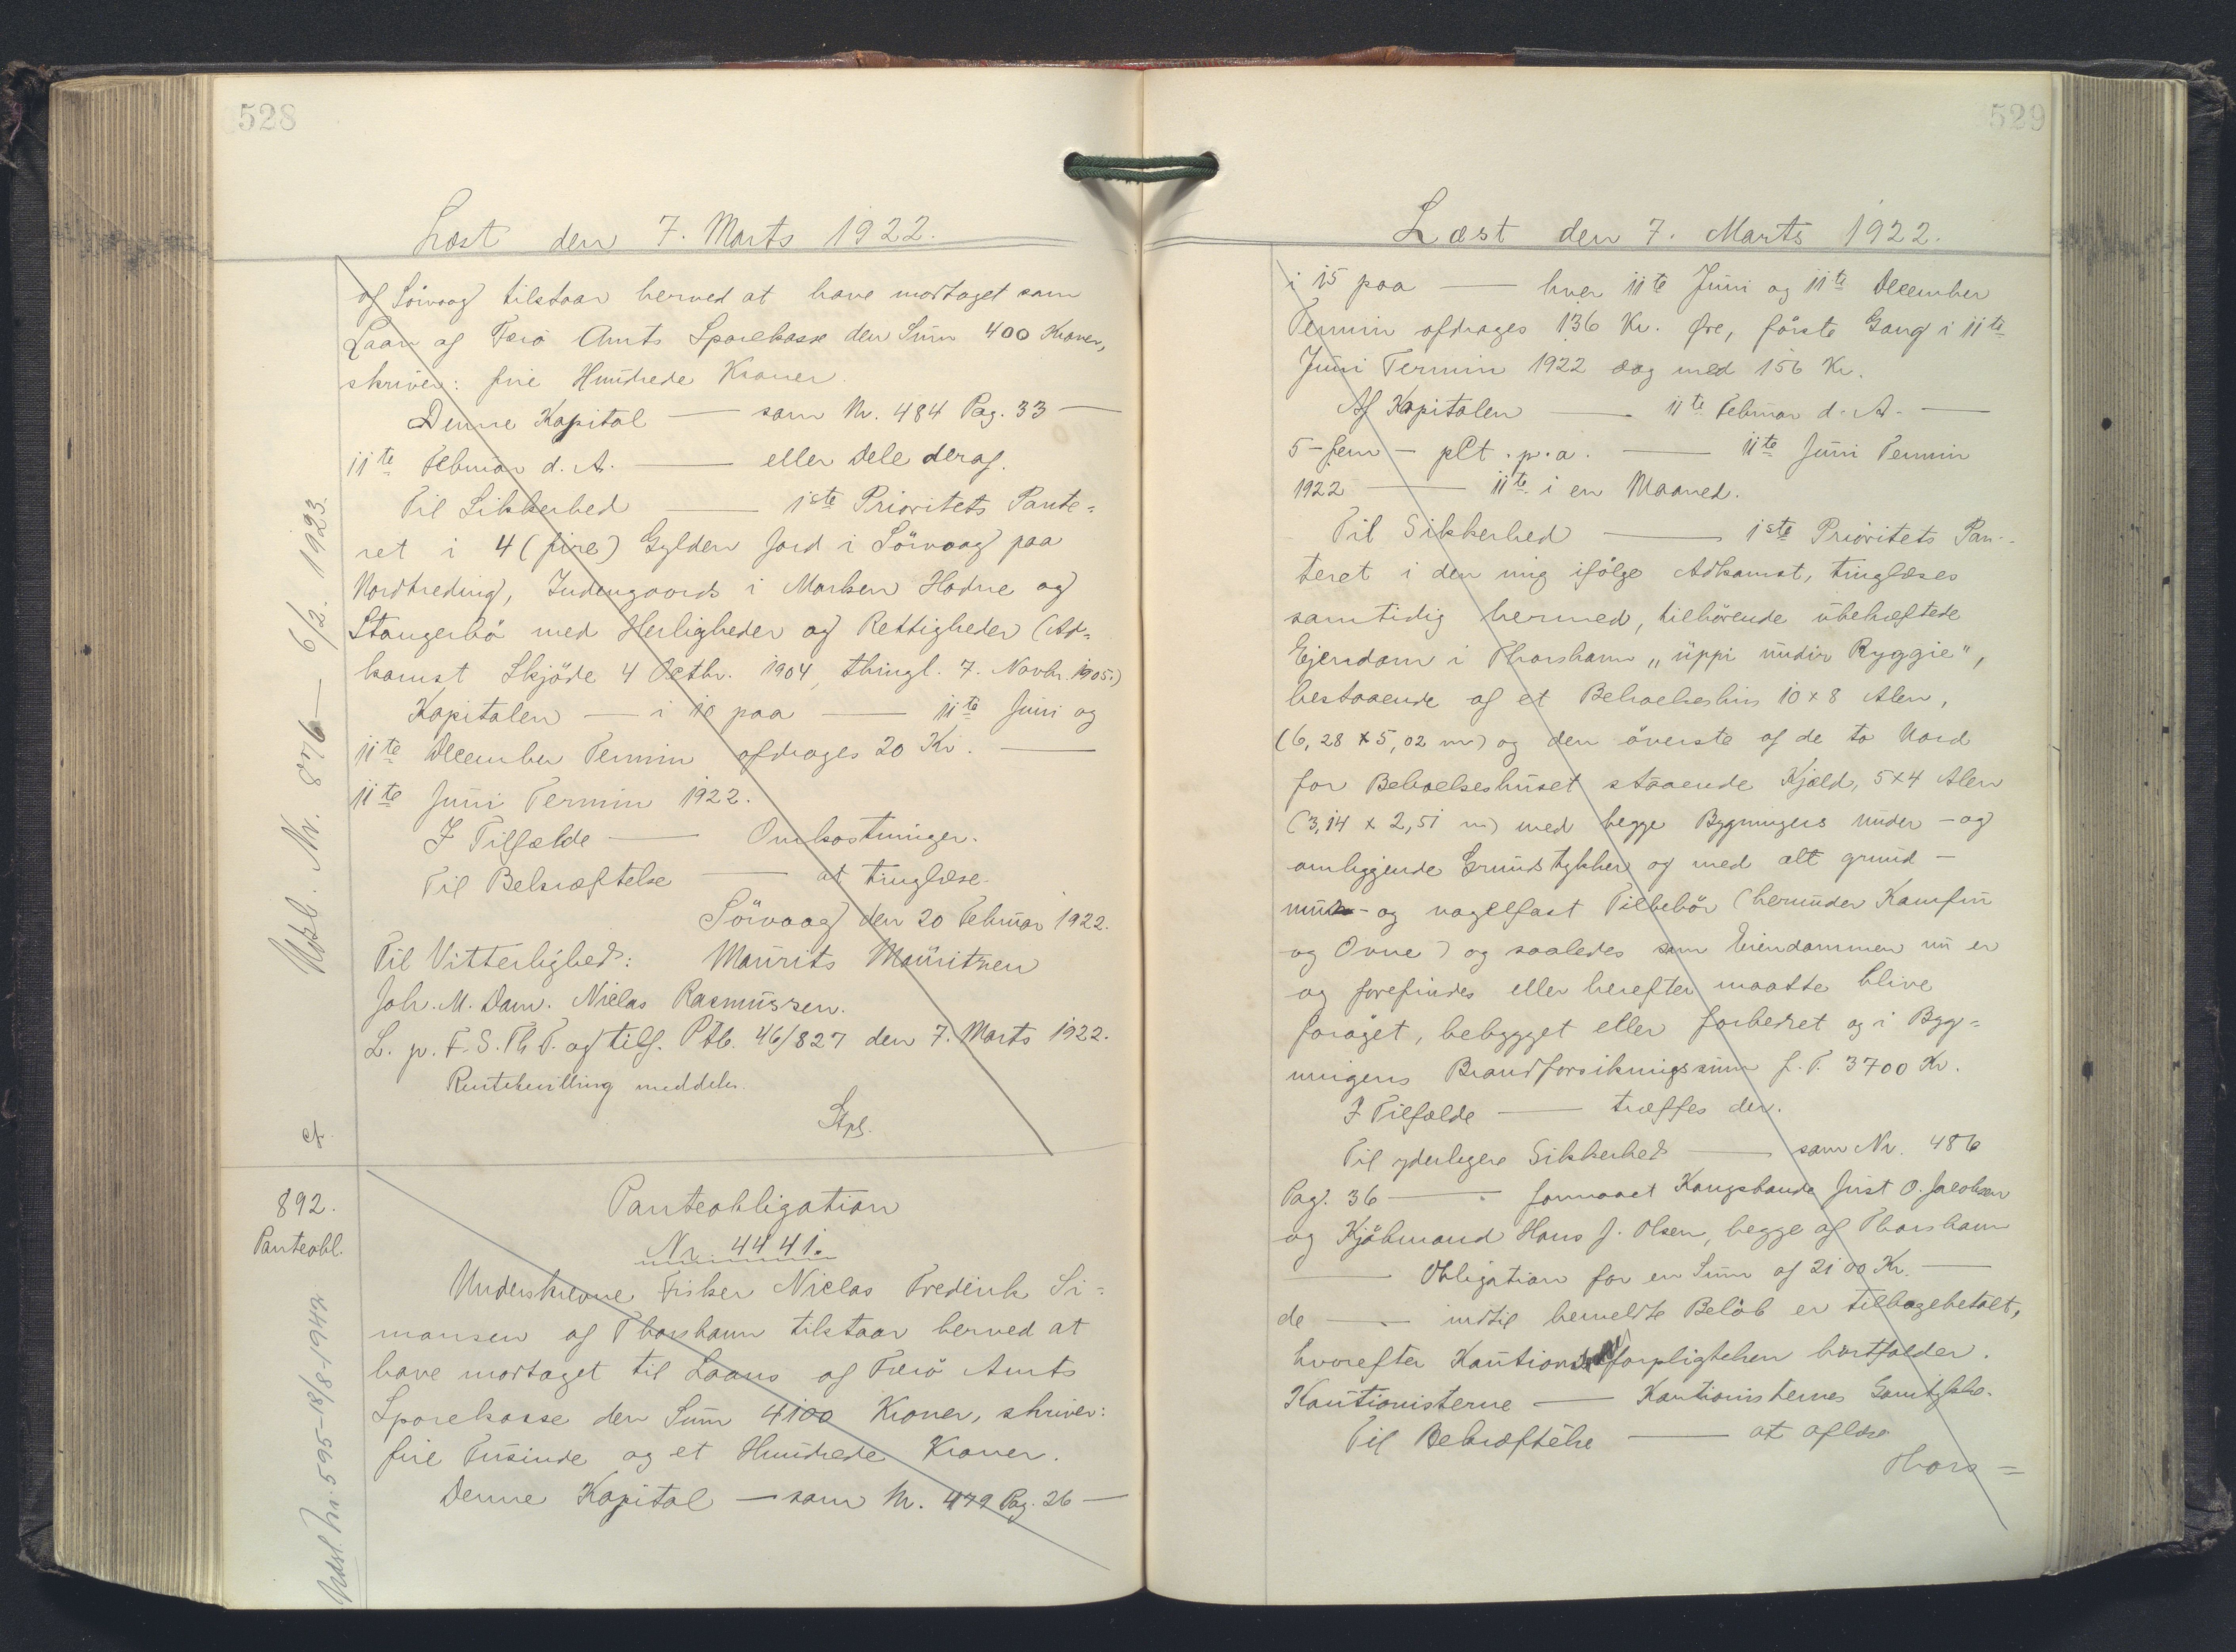 528
Læst den 7. Marts 1922.
af Sörvaag tilstaar herved at have modtaget som
Laan af Færø Amts Sparekasse den Sum 400 Kroner,
skriver: fire Hundrede Kroner.
Denne Kapital — som Nr. 484 Pag. 33 —
11te Februar d. A. — eller Dele deraf.
Til Sikkerhed — 1ste Prioritets Pante-
ret i 4 (fire) Gylden Jord i Sörvaag paa
Nordtreding, Indengaards i Marken Hadne og
Stangerbö med Herligheder og Rettigheder (Ad-
komst Skjöde 4 Octbr. 1904, thingl. 7. Novbr. 1905.)
Kapitalen — i 10 paa — 11te Juni og
11te December Termin afdrages 20 Kr. —
11te Juni Termin 1922.
I Tilfælde — Omkostninger.
Til Bekræftelse — at tinglæse.
Sörvaag den 20 Februar 1922.
Til Vitterlighed: Maurits Mauritzen
Joh. M. Dam. Niclas Rasmussen.
L. p. F. S. Th T. og tilf. Ptb. 46/827 den 7. Marts 1922.
Rentebevilling meddeles.
cf. Udsl. Nr. 876 — 6/2. 1923.
892.
Panteobl.
Udsl. Nr. 595-18/8-1942
Panteobligation
Nr. 4441.
Underskrevne Fisker Niclas Frederik Si-
monsen af Thorshavn tilstaar herved at
have modtaget til Laans af Færö Amts
Sparekasse den Sum 4100 Kroner, skriver:
fire Tusinde og et Hundrede Kroner.
Denne Kapital — som Nr. 479 Pag. 26 —
529
Læst den 7. Marts 1922.
i 15 paa — hver 11te Juni og 11te December
Termin afdrages 136 Kr. Øre, förste Gang i 11te
Juni Termin 1922 dog med 156 Kr.
Af Kapitalen — 11te Februar d. A. —
5 - fem - pCt. p. a. — 11te Juni Termin
1922 — 11te i en Maaned.
Til Sikkerhed — 1ste Prioritets Pan-
teret i den mig ifölge Adkomst, tinglæses
samtidig hermed, tilhörende übehæftede
Ejendom i Thorshavn "uppi undir Ryggie",
bestaaende af et Beboelseshus 10 x 8 Alen,
(6,28 x 5,02 m) og den överste af de to Nord
for Beboelseshuset staaende Kjæld, 5x4 Alen
(3,14 x 2,51 m) med begge Bygningers under - og
omliggende Grundstykker og med alt grund -
mur - og nagelfast Tilbehör (herunder Komfur
og Ovne) og saaledes som Eiendommen nu er
og forefindes eller herefter maatte blive
foröget, bebygget eller forbedret og i Byg-
ningens Brandforsikringssum f. T. 3700 Kr.
I Tilfælde — træffes der.
Til yderligere Sikkerhed — som Nr. 486
Pag. 36 — formaaet Kongsbonde Just O. Jacobsen
og Kjöbmand Hans J. Olsen, begge af Thorshavn
— Obligation for en Sum af 2100 Kr. —
de — indtil bemeldte Belöb er tilbagebetalt,
hvorefter Kautionsforpligtelsen bortfalder.
Kautionisterne — Kautionisternes Samtykke.
Til Bekræftelse — at aflæse
Thors =